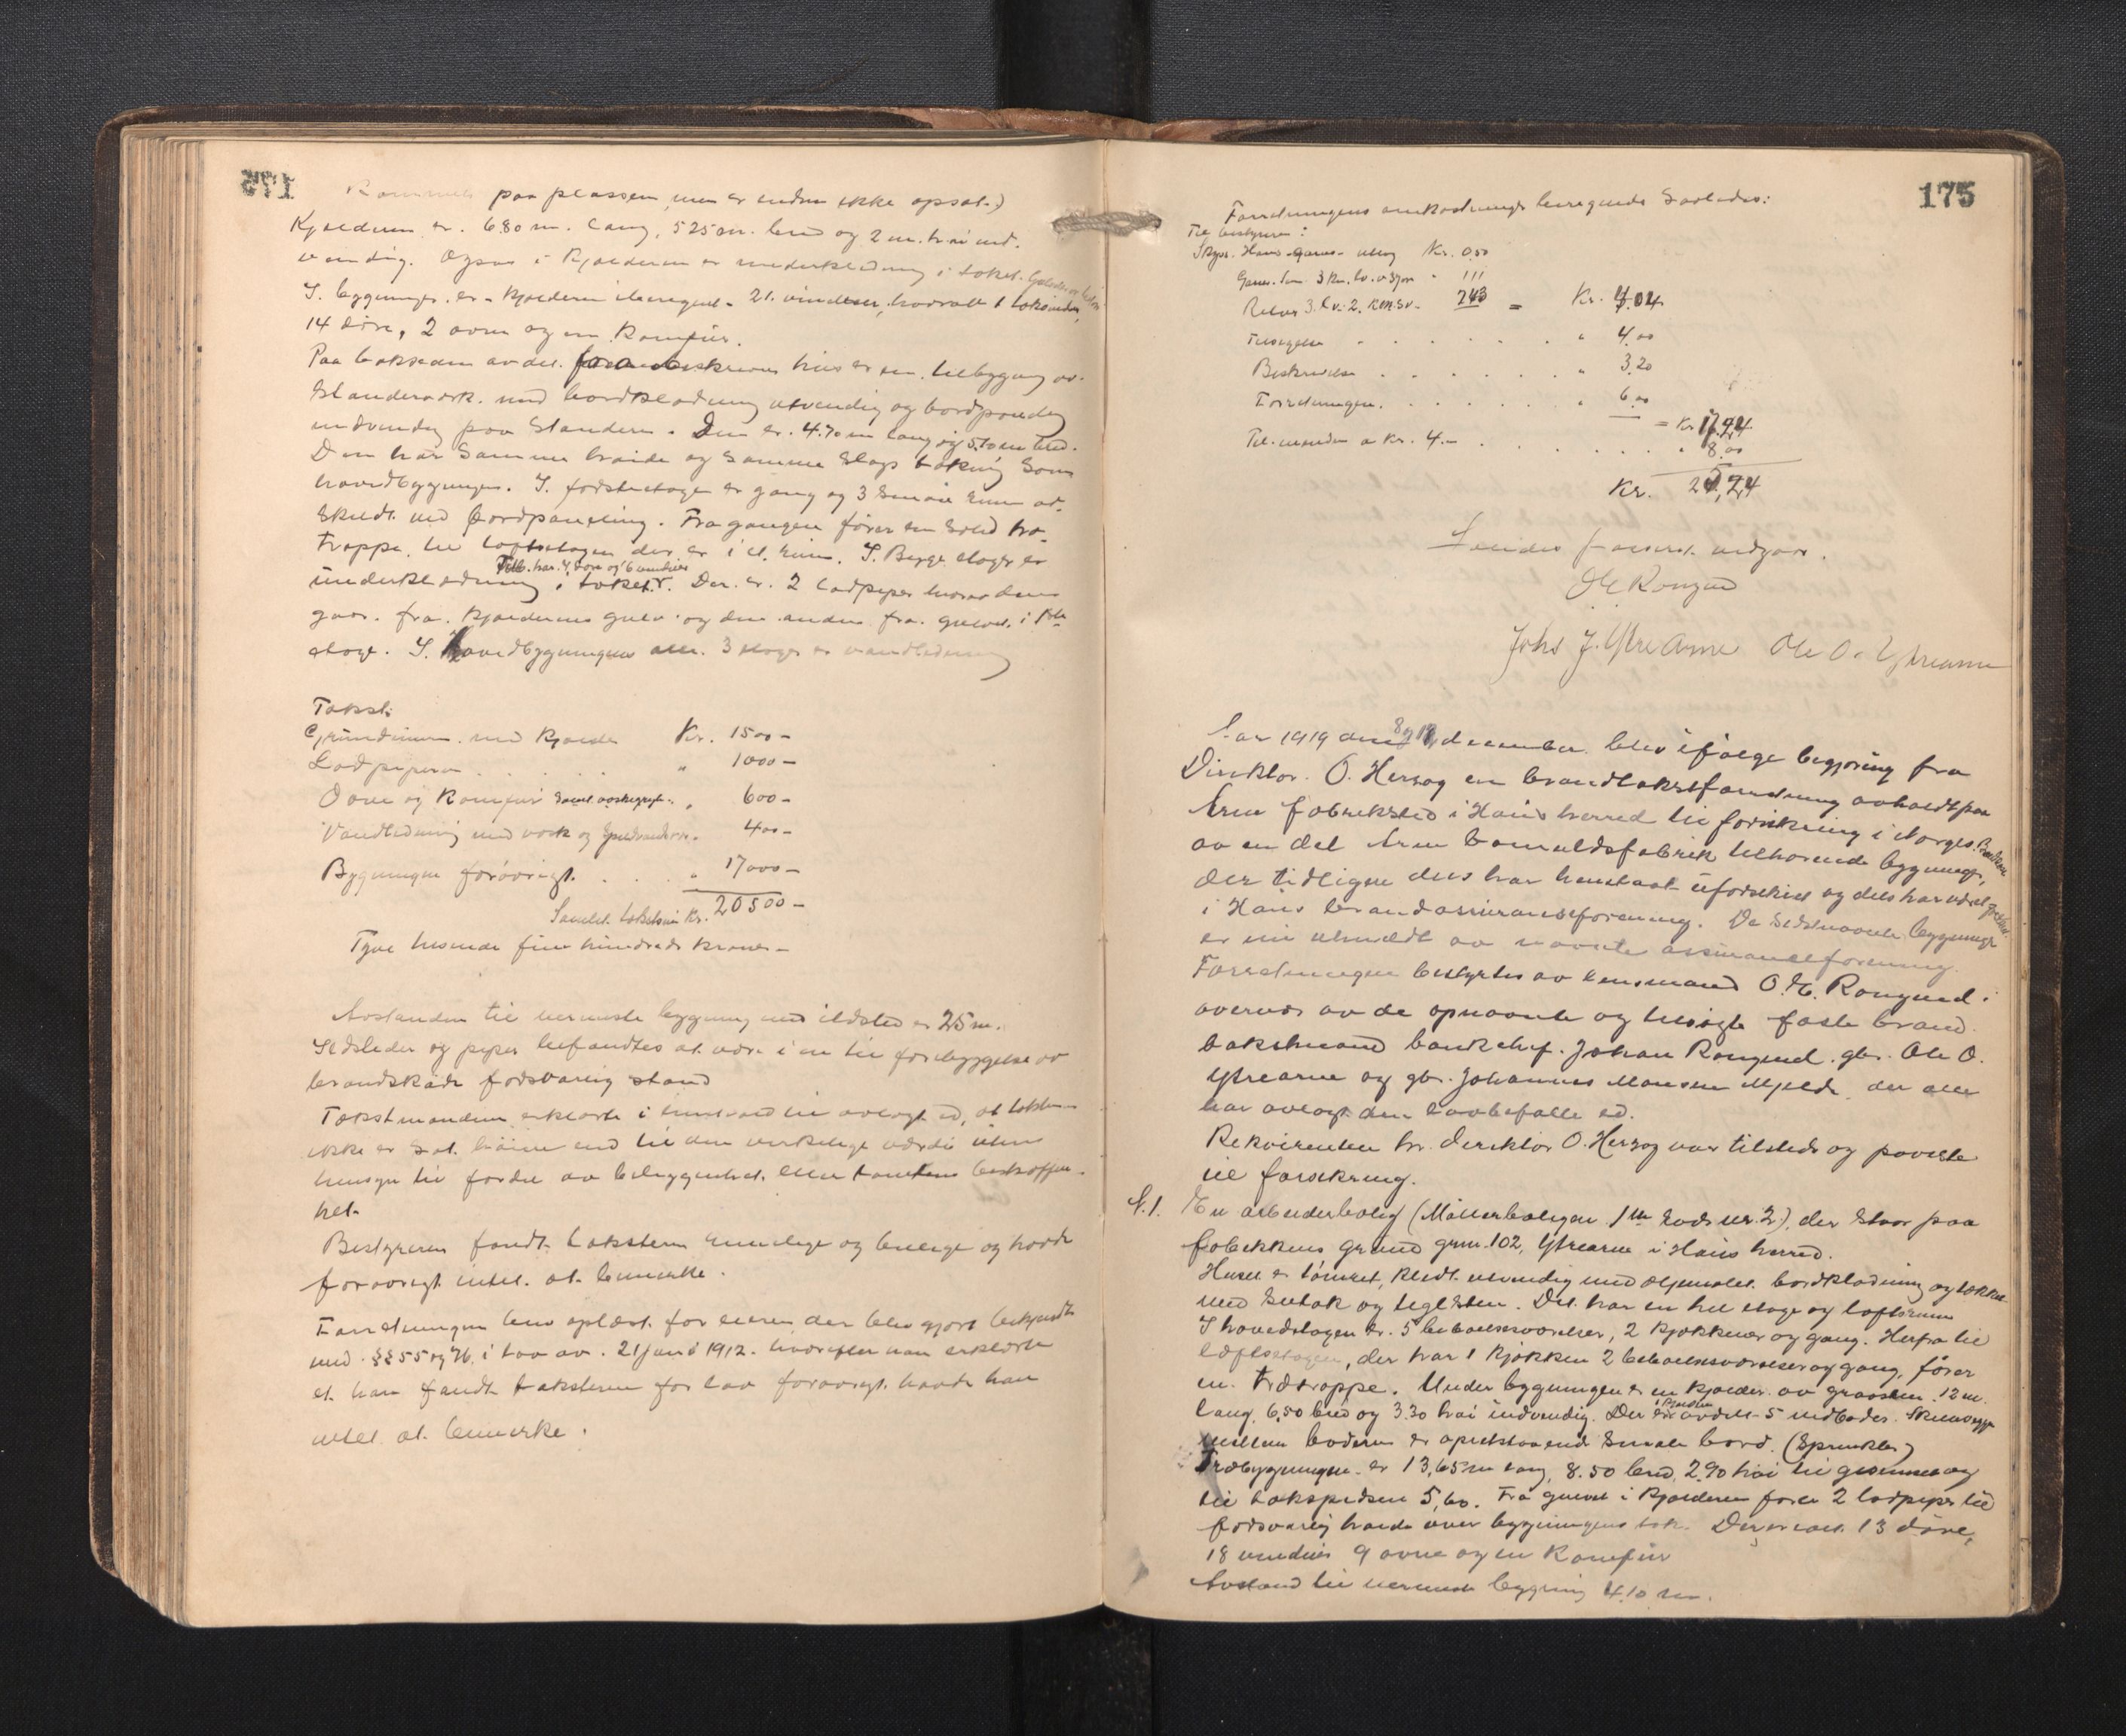 175
paa plassen men er endnu ikke opsat.)
Kjælderen er 6.80 m. lang, 5 25 m. bred og 2 m. høi ind-
vendig. Ogsaa i Kjælderen er underklædning i taket.
I bygningen er - kjælderen iberegnet - 21 vinduer, hvorav 1 takvindu,
14 døre, 2 ovne og en Komfür.
Paa baksiden av det foran beskrevne hus er en tilbygning av
Standerverk med bordklædning utvendig og bordpaneling
indvendig paa Standere. Den er 4.70 m lang og 5.10 m bred.
Den har Samme høide og Samme Slags tækning Som
hovedbygningen. I første etage er gang og 3 Smaa rum ad-
skildt ved bordpaneling. Fra gangen fører en Solid træ-
trappe til loftsetagen der er i et rum. I Begge etager er
Tilb. har 4 døre og 6 vinduer
underklædning i taket. Der er 2 ladpiper hvorav den ene
gaar fra Kjælderens gulv og den anden fra gulvet i 1ste
etage. I Hovedbygningens alle 3 etager er vandledning
Takst:
Grundmur med Kjælder Kr. 1500 -
Ladpipern . . . " 1000 -
Ovne og Komfür " 600 -
Vandledning med vask og 400 -
Bygningen forøvrigt . . . " 17000 -
Samlet takstsum Kr. 20500 -
Tyve tusende fem hundrede kroner -
Avstanden til nærmeste bygning med ildsted er 25 m.
Ildsteder og piper befandtes at være i en til forebyggelse av
brandskade forsvarlig stand
Takstmændene erklærte i henhold til avlagt ed, at taksten
ikke er sat høiere end til den virkelige værdi uten
hensyn til fordel av beliggenhet eller tomtens beskaffen-
het.
Bestyreren fandt taksten rimelige og billige og hadde
forøvrigt intet at bemerke.
Forretningen blev oplæst for eieren der blev gjort bekjendt
med §§ 55 og 76 i lov av 21 juni 1912. hvorefter han erklærte
at han fandt taksterne for lav forøvrigt hadde han
intet at bemerke.
175
Forretningens omkostninger beregnede saaledes:
Til bestyreren:
Skyds. Haus - Garnes - Kr. 0,50
Garnes 3 km. 111
243 = Kr. 4.04
Tilsigelse . . . . . . " 4.00
Beskrivelse . . . . . . " 3.20
Forretningen . . . . . " 6.00
= Kr. 17.24
Til mændene a Kr. 4.- . . . . . . " 8.00
Kr. 25,24
Ole Rongved
Johs J. Ytre Arne Ole O. Ytrearne
Aar 1919 den 8 og 12 december blev ifølge begjæring fra
Direktør O. Herzog en brandtakstforretning avholdt paa
Arne fabriksted i Haus herred til forsikring i Norges Brandkasse
av en del Arne bomuldsfabrik tilhørende bygninger,
der tidligere dels har henstaat uforsikret og dels har været
i Haus brandassuranceforening. De sidstnævnte bygninger
er nu utmeldt av nævnte assuranceforening.
Forretningen bestyrtes av lensmand O. M. Rongved i
overvær av de opnævnte og tilsagte faste brand-
takstmænd bankchef Johan Rongved, gbr. Ole O.
Ytrearne og gbr. Johannes Monsen Mjelde, der alle
har avlagt den lovbefalte ed.
Rekvirenten hr. direktør O. Herzog var tilstede og paaviste
til forsikring.
N. 1. En arbeiderbolig (Møllerboligen 1ste hus nr. 2), der staar paa
fabrikkens grund grnr. 102, Ytrearne i Haus herred.
Huset er tømret, klædt utvendig med oljemalet bordklædning og tækket
med Sutak og teglsten. Det har en hel etage og loftsrum
I hovedetagen er 5 beboelsesværelser, 2 kjøkkener og gang. Herfra til
loftsetagen, der har 1 kjøkken 2 beboelsesværelser og gang, fører
en trætrappe. Under bygningen er en kjælder av graasten 12 m.
lang 6,50 bred og 3.30 høi indvendig. Der er avdelt 5 vedboder. Skillevegge
mellem boderne er opretstaaende Smale bord. (Sprinkler)
Træbygningen er 13,65 m lang, 8.50 bred, 2.90 høi til gesimsen og
til takspidsen 5,60. Fra gulvet i Kjælderen fører 2 ladpiper til
forsvarlig høide over bygningens tak. Der er ialt 13 døre,
18 vinduer 9 ovne og en Komfür
Avstand til nærmeste bygning 4.10 m.